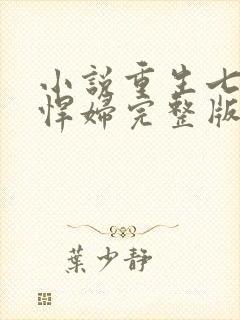 小説重生七
悍婦完整版
葉少靜